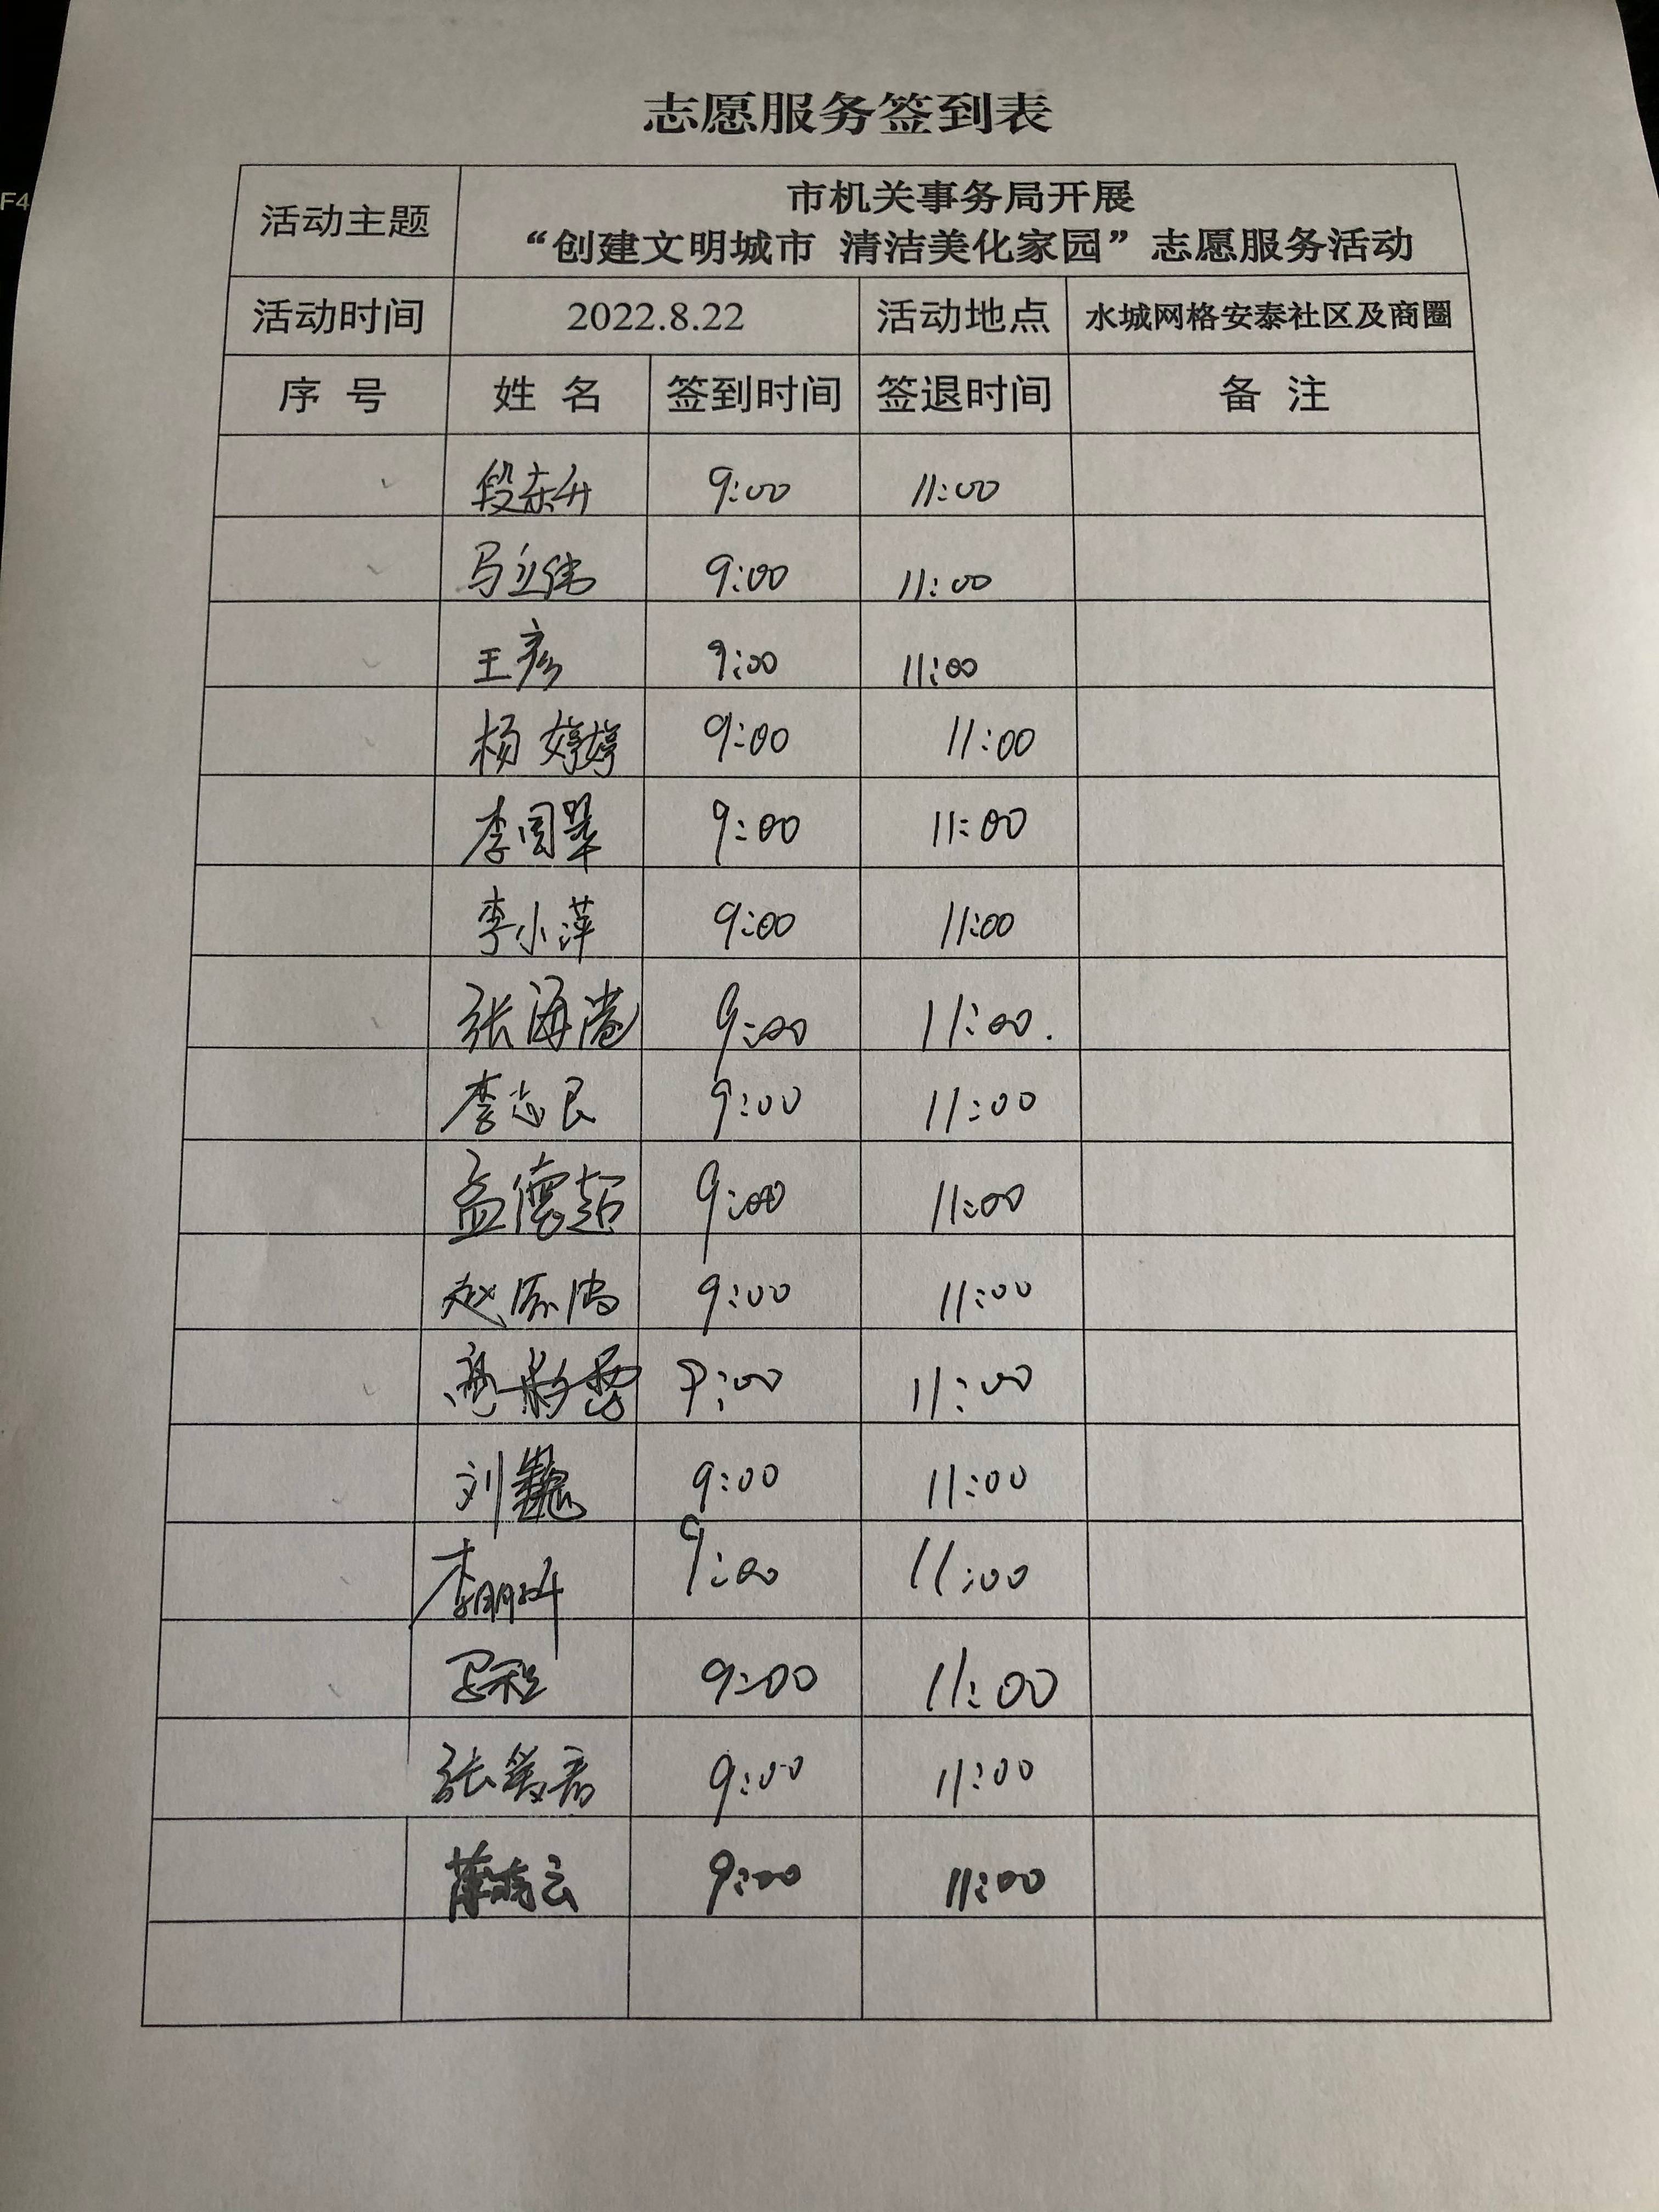 F4
志愿服务签到表
活动主题
市机关事务局开展
“创建文明城市 清洁美化家园”志愿服务活动
活动时间 2022.8.22 活动地点 水城网格安泰社区及商圈
序 号 姓 名 签到时间 签退时间 备 注
段东升 9:00 11:00
马立伟 9:00 11:00
王彦 9:00 11:00
杨婷婷 9:00 11:00
李国翠 9:00 11:00
李小萍 9:00 11:00
张海 9:00 11:00.
李志民 9:00 11:00
孟德超 9:00 11:00
赵 9:00 11:00
高彩霞 9:00 11:00
刘巍 9:00 11:00
李 9:00 11:00
9:00 11:00
张 9:00 11:00
薛晓云 9:00 11:00